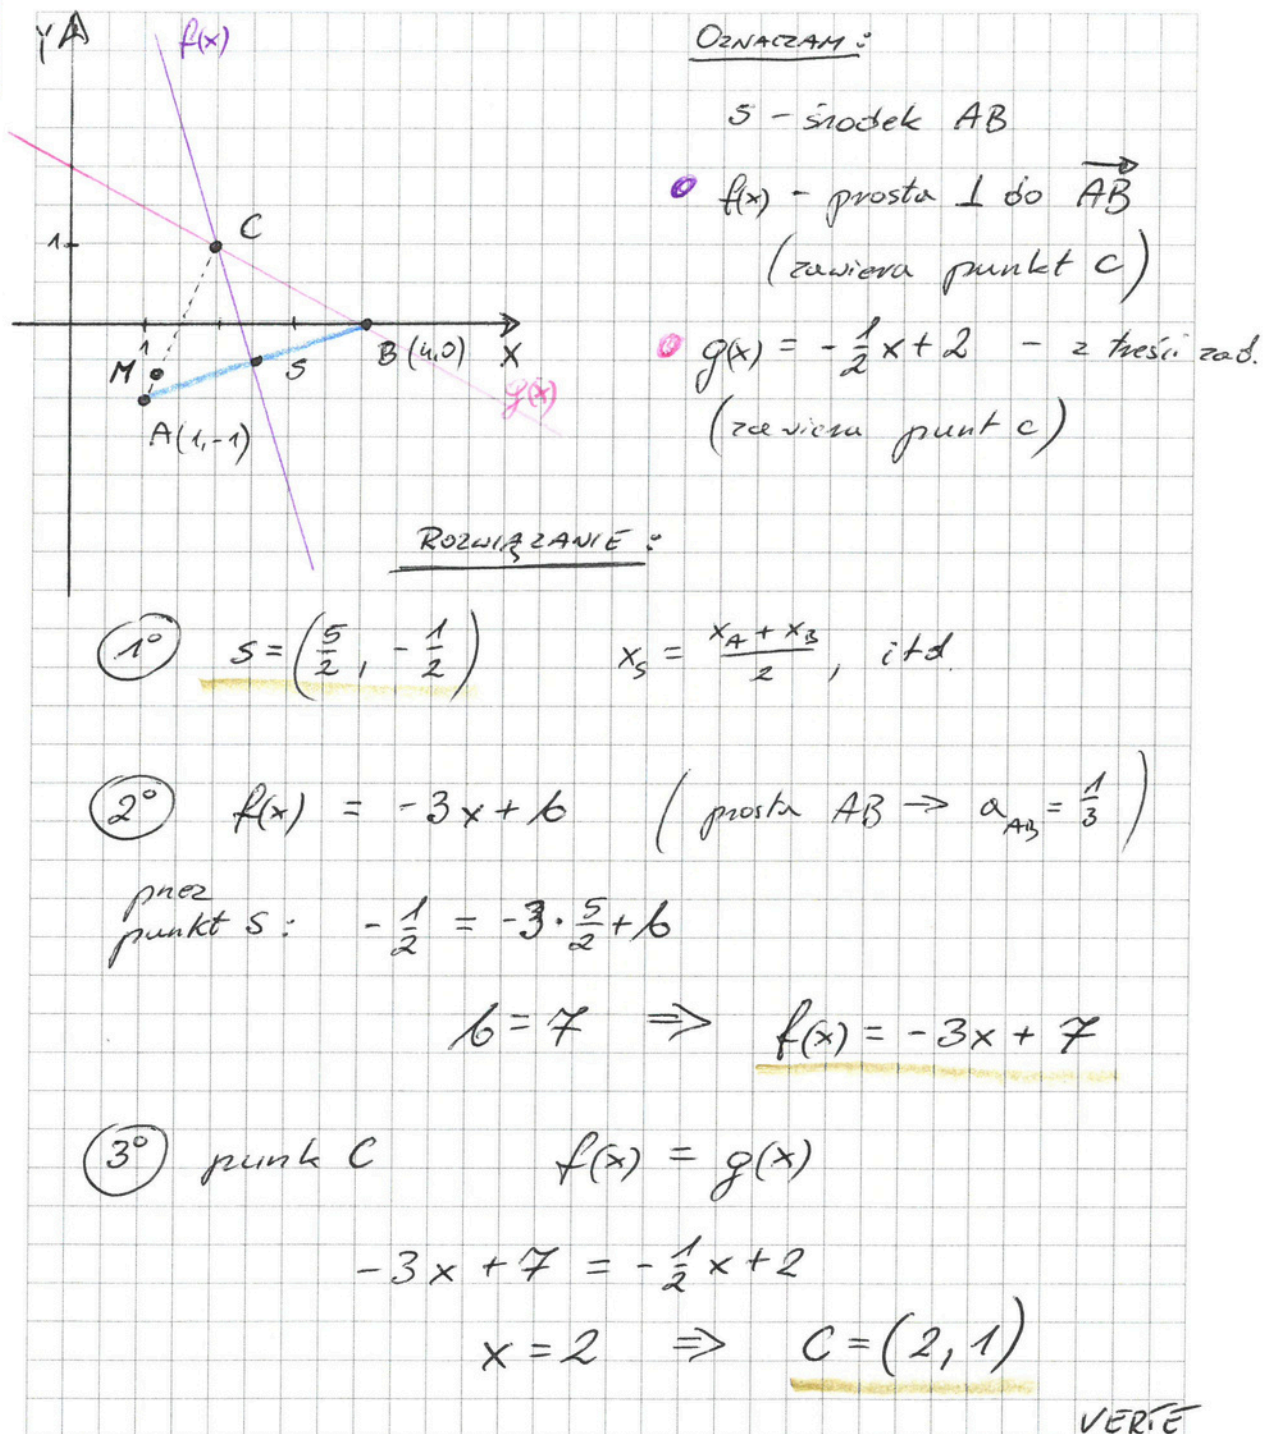 y
f(x)
1
C
1
M
S
B(4,0)
X
g(x)
A(1,-1)
OZNACZAM:
S - środek AB
f(x) - prosta ⊥ do AB
(zawiera punkt C)
g(x) = -1/2 x + 2 - z treści zad.
(zawiera punt C)
ROZWIĄZANIE:
1° S = (5/2, -1/2) x_S = (x_A + x_B)/2, itd.
2° f(x) = -3x + b (prosta AB → a_AB = 1/3)
przez
punkt S: -1/2 = -3 · 5/2 + b
b = 7 ⇒ f(x) = -3x + 7
3° punk C f(x) = g(x)
-3x + 7 = -1/2 x + 2
x = 2 ⇒ C = (2, 1)
VERTE